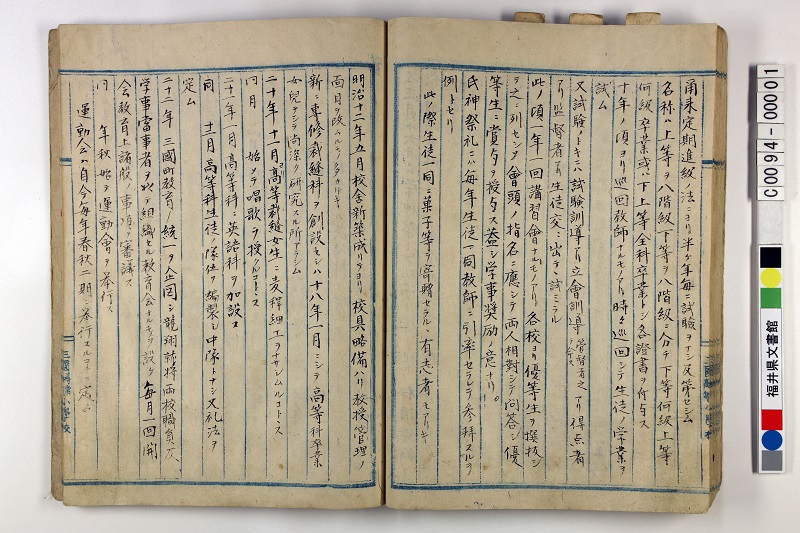 甬来定期進級ノ法ニヨリ半ケ年毎ニ試験ヲナシ及第セシム
名称ハ上等ヲ八階級下等ヲ八階級ニ分チ下等何級上等
何級卒業或ハ下上等全科卒業トシ各證書ヲ付与ス
十年ノ頃ヨリ巡回教師ナルモノアリ時々巡回シテ生徒ノ学業ヲ
試ム
又試験ノトキハ試験訓導アリ立會訓導アリ得点者
アリ監督者アリ生徒交々出テ試ミラル
此ノ頃一年一回講習會ナルモノアリ各校ヨリ優等生ヲ撰抜シ
テ之ニ列セシメ會頭ノ指名ニ應シテ両人相對シテ問答シ優
等生ニ賞与ヲ授与ス蓋シ学事奨励ノ意ナリ。
氏神祭礼ニハ毎年生徒一同教師ニ引率セラレテ参拜スルヲ
例トセリ
此ノ際生徒一同ニ菓子等ヲ寄贈セラルヽ有志者モアリキ
明治十二年五月校舎新築成リテヨリ校具略備ハリ教授管理ノ
面目ヲ改ムルニ
新ニ専修裁縫科ヲ創設セシハ十八年一月ニシテ高等科卒業
女児ヲシテ尚深ク研究スル所アラシム
二十年十一月高等裁縫女生ニ麦稈細工ヲナサシムルコトヽス
同月 始メテ唱歌ヲ授クルコトヽス
二十一年一月高等科ニ英語科ヲ加設ス
同 十一月高等科生徒ノ隊伍ヲ編製シ中隊トナシ又礼法ヲ
定ム
二十二年三國町教育ノ統一ヲ企図シ龍翔 両校職員及
学事當事者ヲ以テ組織セル教育会ナルモノヲ設ケ毎月一回開
会教育上諸般ノ事項ヲ審議ス
同 年秋始テ運動會ヲ挙行ス
運動会ハ自今毎年春秋二期ニ挙行スルコトニ定ム
三國 小學校
C0094-00001
福井県文書館